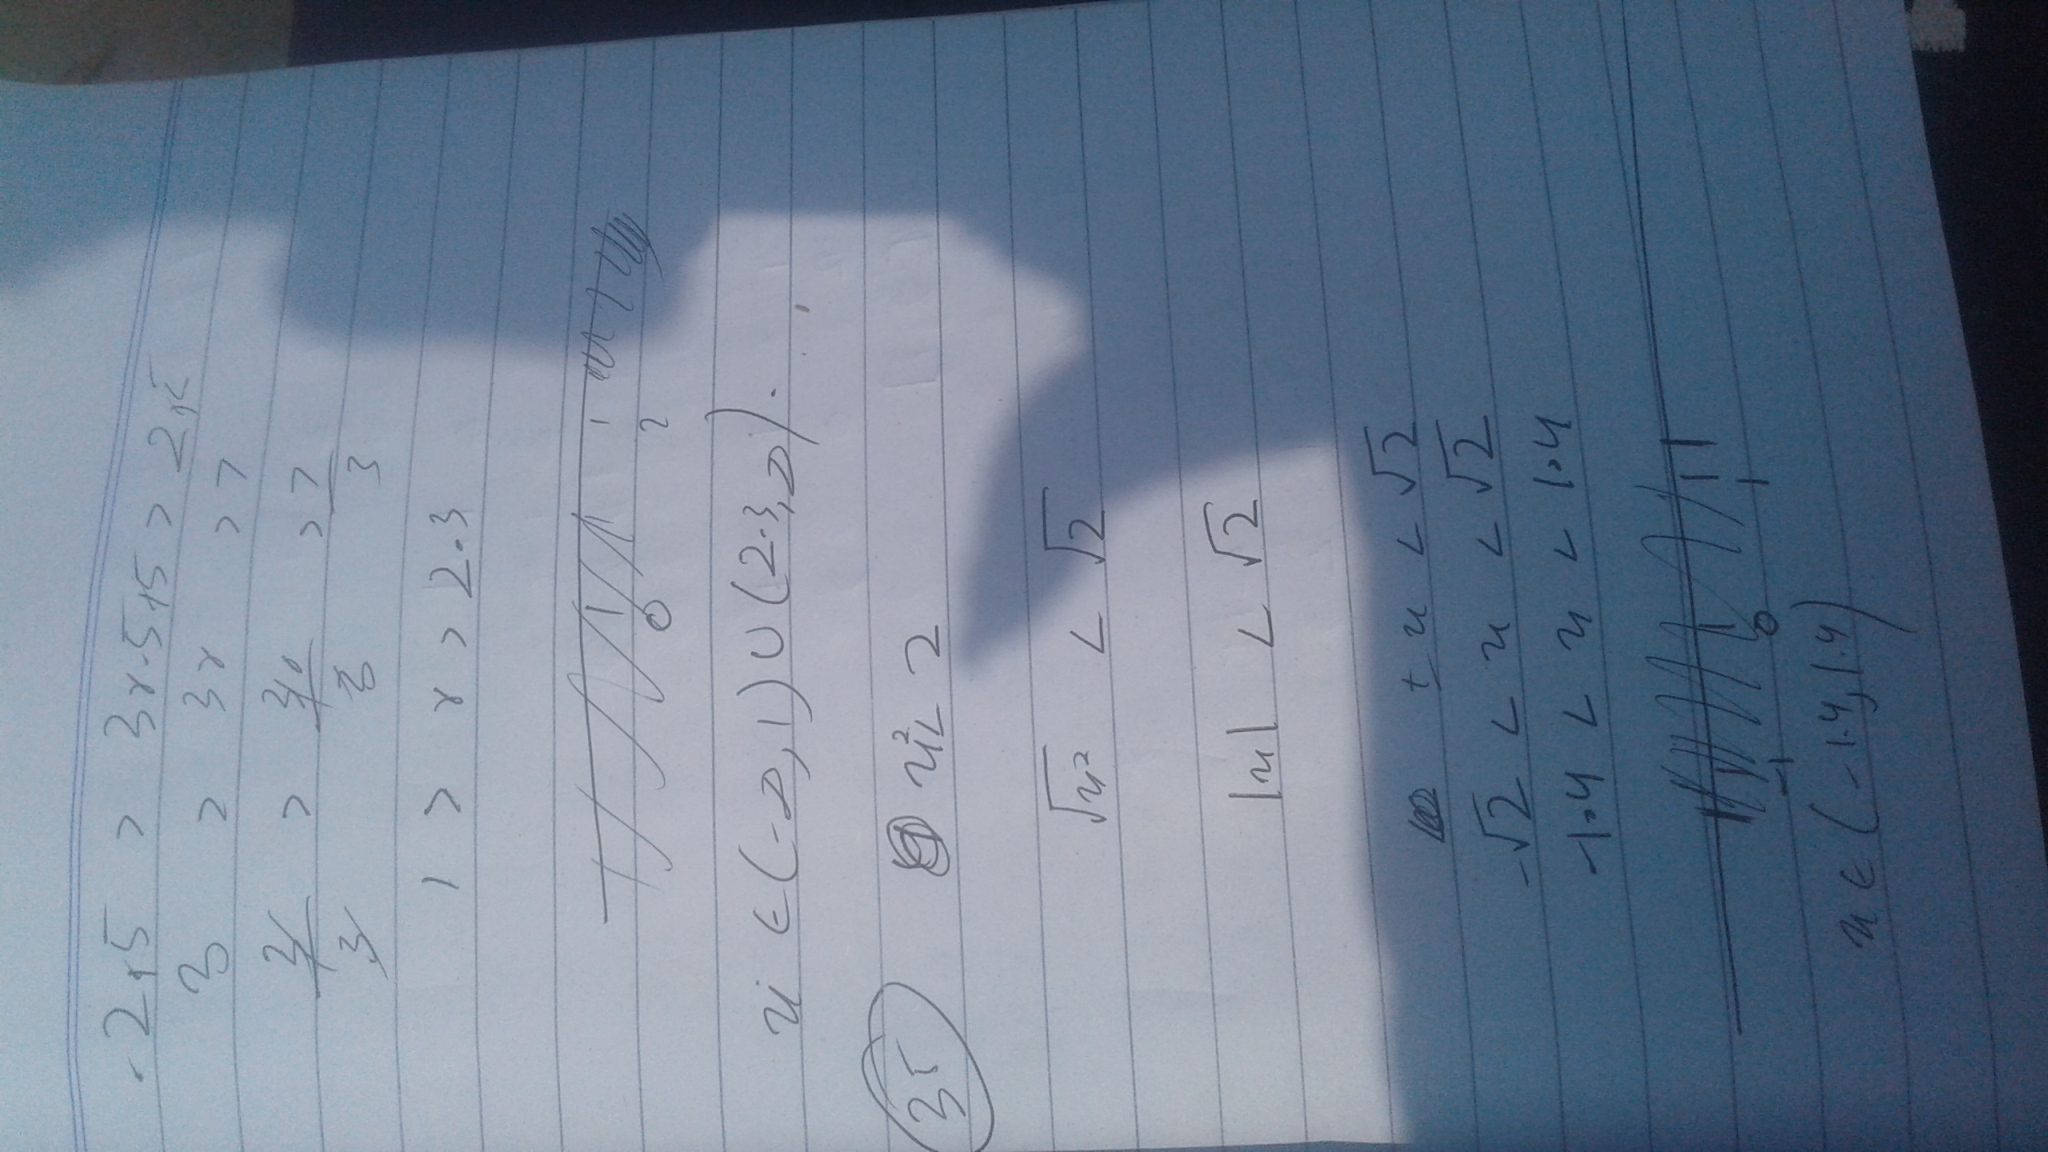 -2+5 > 3x-5+5 > 2+5
3 > 3x > 7
3/3 > 3x/3 > 7/3
1 > x > 2.3
0 2
x ∈ (-∞, 1) ∪ (2.3, ∞).
35 x² < 2
√x² < √2
|x| < √2
± x < √2
-√2 < x < √2
-1.4 < x < 1.4
-1 0 1
x ∈ (-1.4, 1.4)